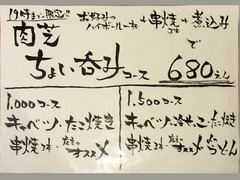 19時まで限定!!
お好みのハイボール一杯 串焼き2本 + 煮込み
肉芝 で
ちょい呑みコース 680えん
1,000コース
キャベツ・たこ焼き
串焼き3本・店主のオススメ
1,500コース
キャベツ・冷やっこ・たこ焼き
串焼き3本・店主のオススメ